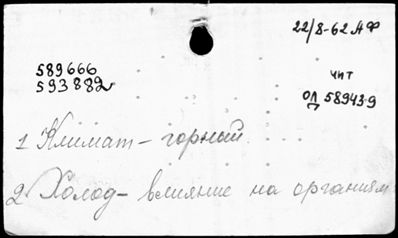 22/8-62 АФ
589666
593882
чит
ОЛ 58943-9
1 Климат - горный
2 Холод - влияние на организм